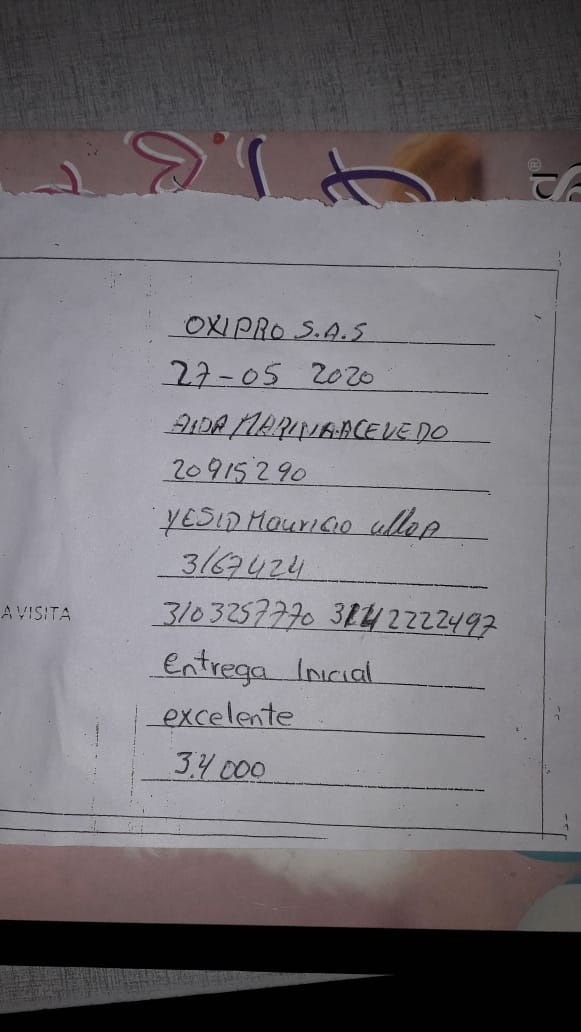 OXIPRO S.A.S
27-05 2020
AIDA MARINA ACEVEDO
20915290
YESID Mauricio ulloA
3167424
A VISITA 3103257770 3142222497
Entrega Inicial
excelente
34000